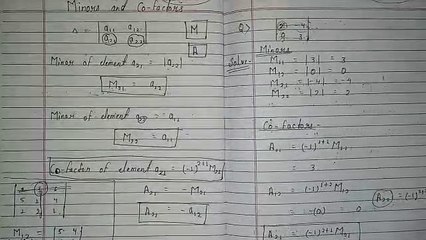 Minors and Co-factors
Δ = | a₁₁ a₁₂ |
| a₂₁ a₂₂ |
M
A
Minor of element a₁₁ = |a₂₂|
M₁₁ = a₂₂
Minor of element a₂₂ = a₁₁
M₂₂ = a₁₁
Co-factor of element a₂₁ = (-1)²⁺¹ M₂₁
A₂₁ = - M₂₁
A₂₁ = - a₁₂
5 2 4
M₁₂ = | 5 4
Q>
2 -4
0 3
Solve-
Minors
M₁₁ = |3| = 3
M₁₂ = |0| = 0
M₂₁ = |-4| = -4
M₂₂ = |2| = 2
Co-factors-
A₁₁ = (-1)¹⁺¹ M₁₁
= 3
A₁₂ = (-1)¹⁺² M₁₂
= -(0) 0
A₂₁ = (-1)²⁺¹ M₂₁
A₂₂ = (-1)